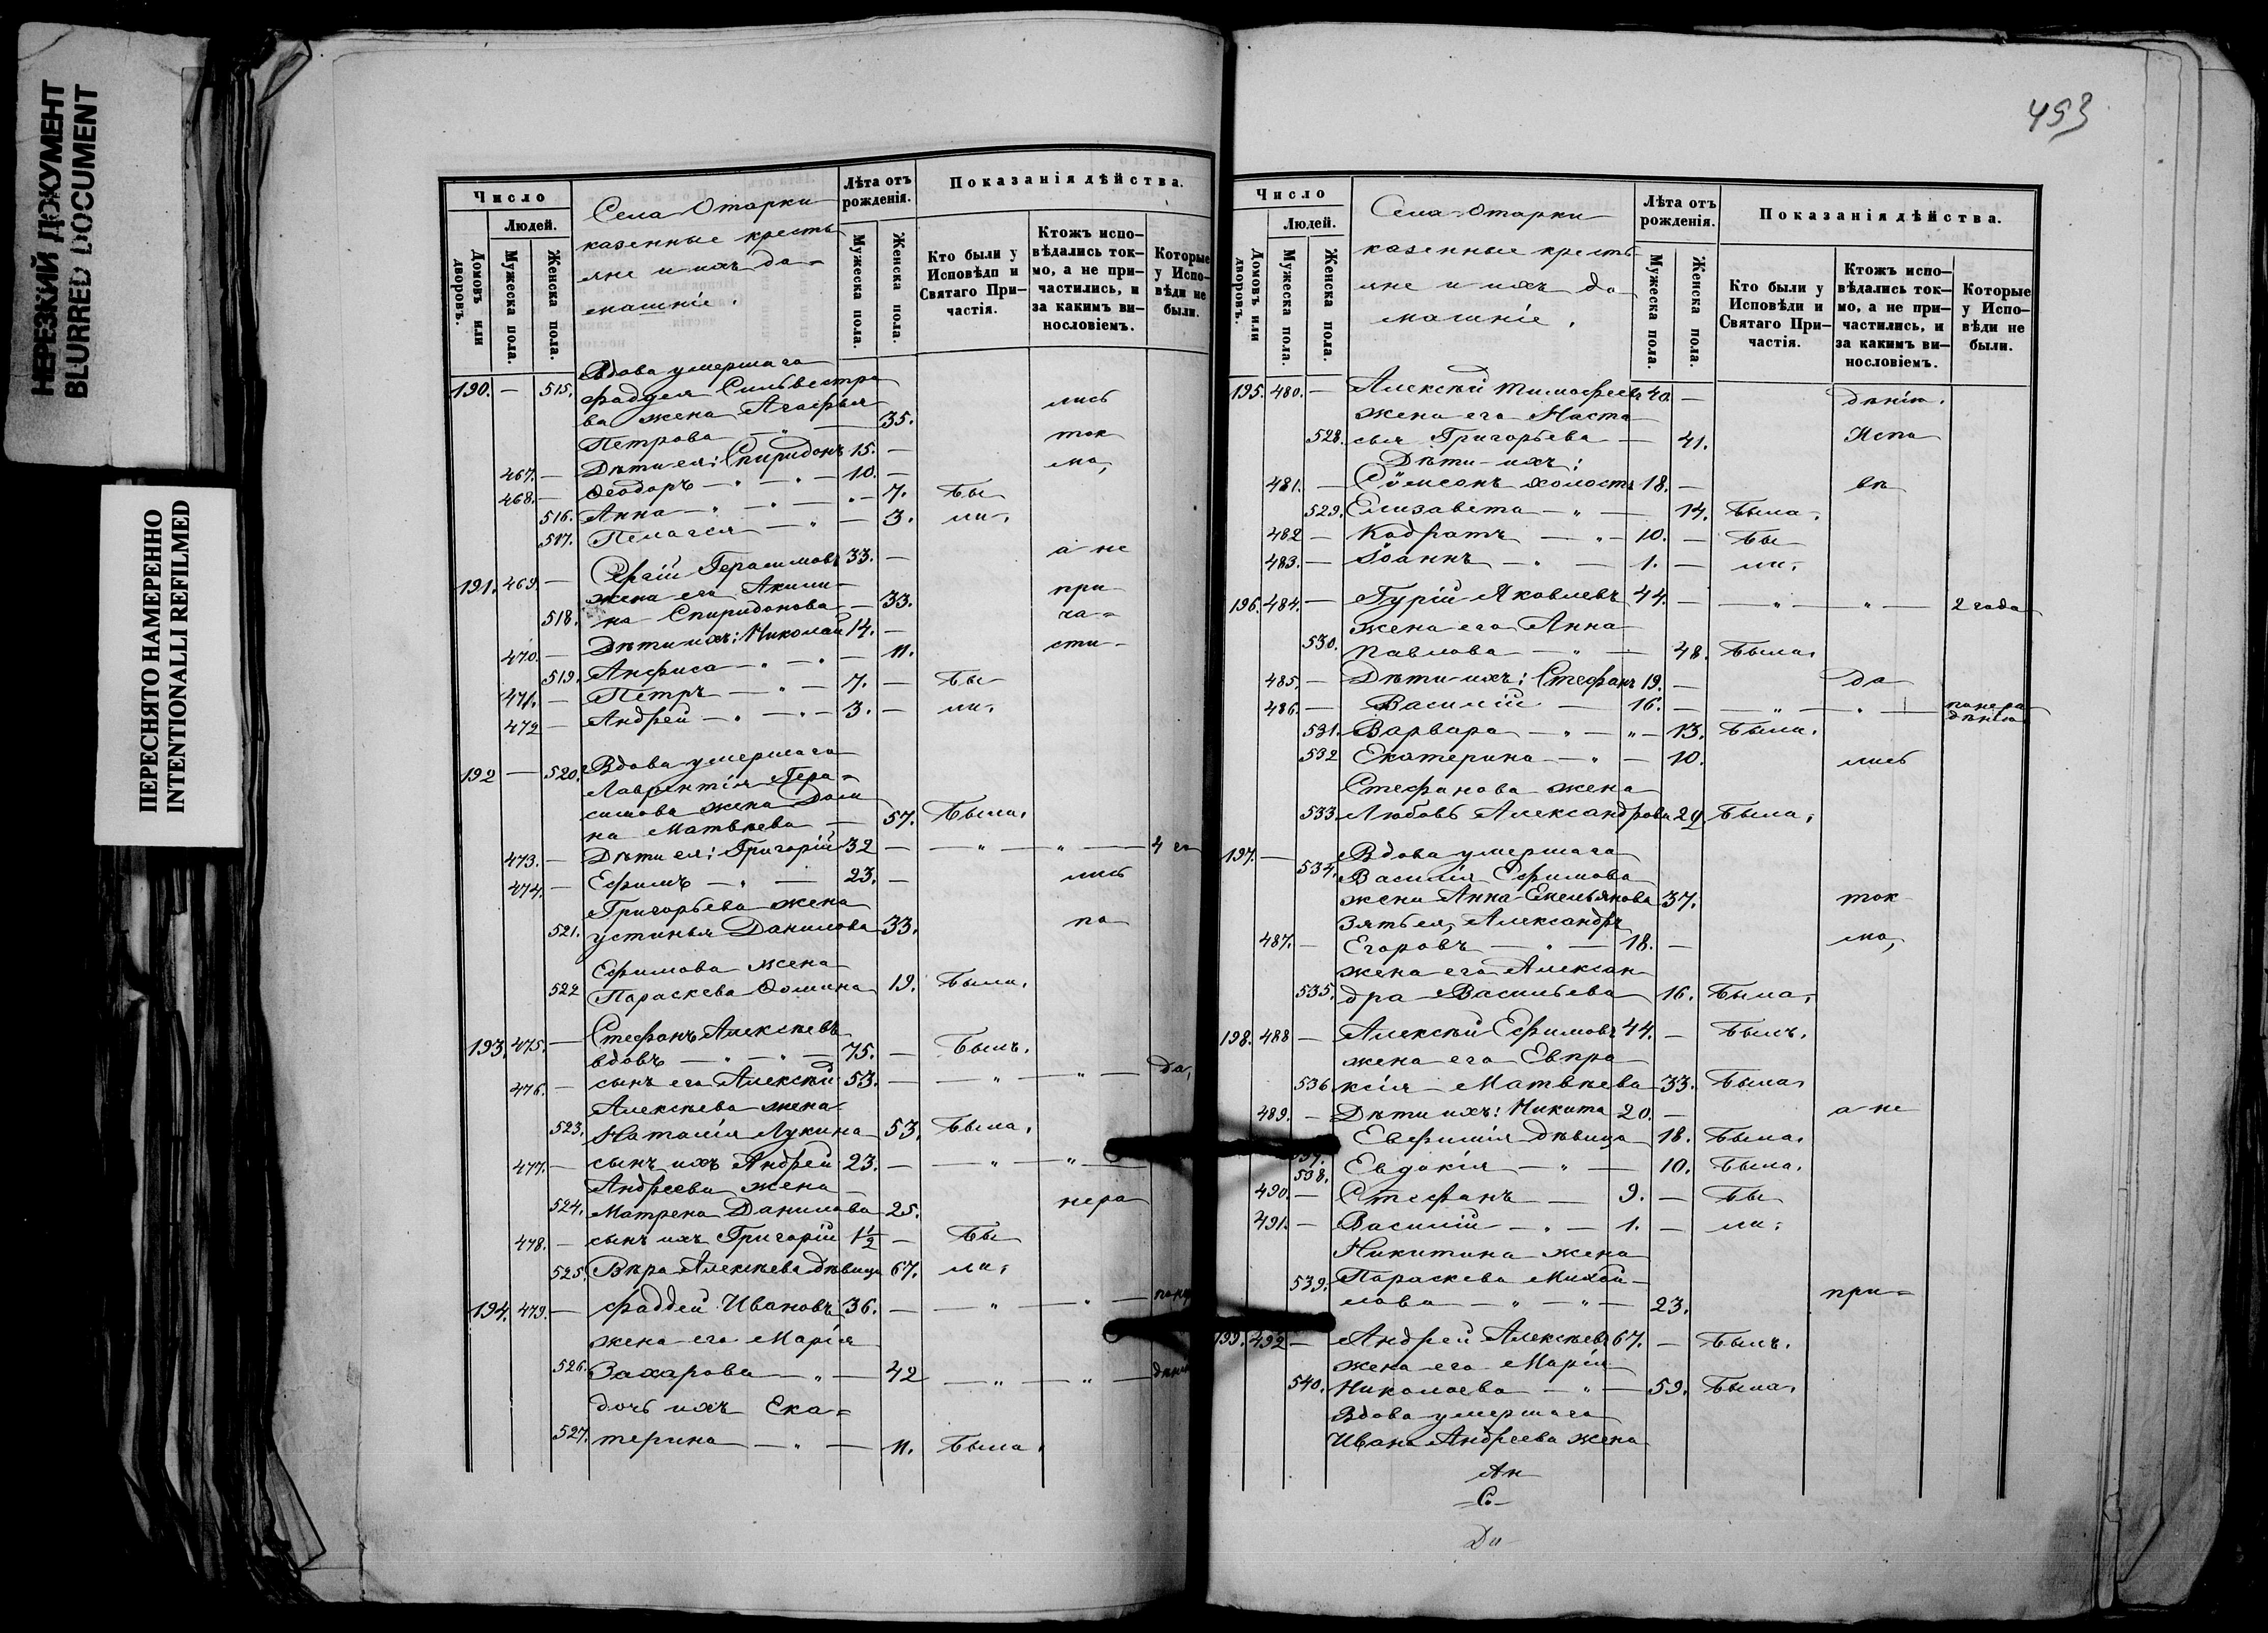 НЕРЕЗКИЙ ДОКУМЕНТ
BLURRED DOCUMENT
ПЕРЕСНЯТО НАМЕРЕННО
INTENTIONALLI REFILMED
Число
Людей.
Домовъ или дворовъ.
Мужеска пола.
Женска пола.
Села Отарки
казенные кресть
яне и ихъ до=
машніе.
Лѣта отъ рожденія.
Мужеска пола.
Женска пола.
Показанія дѣйства.
Кто были у Исповѣди и Святаго При-частія.
Ктожъ испо-вѣдались ток-мо, а не при-частились, и за какимъ ви-нословіемъ.
Которые у Испо-вѣди не были.
190. — 515. Вдова умершаго
Фаддея Сильвестро
ва жена Агафья лись
Петрова — „ — 35. ток
467. — Дѣти ея: Спиридонъ 15. — мо,
468. — Ѳеодоръ — „ — „ — 10. —
516. Анна — „ — „ — „ — 7. Бы
517. Пелагея — „ — 3. ли.
191. 469. — Сергій Герасимовъ 33. — а не
жена его Акили- при
518. на Спиридонова — 33. ча=
470. — Дѣти ихъ: Николай 14. — сти-
519. Анфиса — „ — „ — 11.
471. — Петръ — „ — 7. — Бы-
472 — Андрей — „ — „ — 3. — ли.
192 — 520. Вдова умершаго
Лаврентія Гера=
симова жена Дом
на Матвѣева — 57. Была.
473. — Дѣти ея: Григорій 32 — — „ — „ — 4 го
474. — Ефимъ — „ — 23. — лись
Григорьева жена
521. Устинья Данилова 33. по
Ефимова жена
522 Параскева Ѳомина 19. Была.
193. 475. — Стефанъ Алексѣевъ
вдовъ — „ — „ — 75. — Былъ.
476. — сынъ его Алексѣй 53. — — „ — „ — да,
Алексѣева жена
523. Наталія Лукина 53. Была.
477. — сынъ ихъ Андрей 23. — — „ — „ —
Андреева жена
524. Матрена Данилова 25. нера
478. — сынъ ихъ Григорій 1½ — Бы
525. Вѣра Алексѣева дѣвица 67. ли.
194. 479. — Фаддей Ивановъ 36. — — „ — „ —
жена его Марія
526. Захарова — „ — 42 — „ — „ —
дочь ихъ Ека=
527. терина — „ — 11. Была.
493
Число
Людей.
Домовъ или дворовъ.
Мужеска пола.
Женска пола.
Села Отарки
казенные кресть
яне и ихъ до
машніе.
Лѣта отъ рожденія.
Мужеска пола.
Женска пола.
Показанія дѣйства.
Кто были у Исповѣди и Святаго При-частія.
Ктожъ испо-вѣдались ток-мо, а не при-частились, и за какимъ ви-нословіемъ.
Которые у Испо-вѣди не были.
195. 480. — Алексѣй Тимофеевъ 40 — дѣнію.
жена его Наста
528. сья Григорьева — 41. Испо
Дѣти ихъ:
481. — Сѵмеонъ холостъ 18. — вѣ
529. Елизавета — „ — 14. Была.
482 — Кодратъ — „ — 10. — Бы
483. — Іоаннъ — „ — 1. — ли.
196. 484. — Гурій Яковлевъ 44. — — „ — „ — 2 года
жена его Анна
530. Павлова — „ — 48. Была.
485. — Дѣти ихъ: Стефанъ 19. — да
486. — Василій — 16. — — „ — „ — понера
дѣнію
531. Варвара — „ — „ — 13. Была.
532 Екатерина — „ — 10. лись
Стефанова жена
533. Любовь Александрова 22 Была.
197. — 534. Вдова умершаго
Василія Ефимова
жена Анна Емельянова 37. ток
Зять ея, Александръ
487. — Егоровъ — „ — 18. — мо,
жена его Алексан
535. дра Васильева 16. Была.
198. 488 — Алексѣй Ефимовъ 44. — Былъ.
жена его Евпра
536 ксія Матвѣева 33. Была.
489. — Дѣти ихъ: Никита 20. — а не
537. Евфимія дѣвица 18. Была.
538. Евдокія — „ — 10. Была.
490. — Стефанъ — 9. — Бы
491. — Василій — „ — 1. — ли.
Никитина жена
539. Параскева Михай-
лова — „ — „ — 23. при=
199. 492 — Андрей Алексѣевъ 67. — Былъ.
жена его Марія
540. Николаева — „ — 59. Была.
Вдова умершаго
Ивана Андреева жена
Ан
С.
До